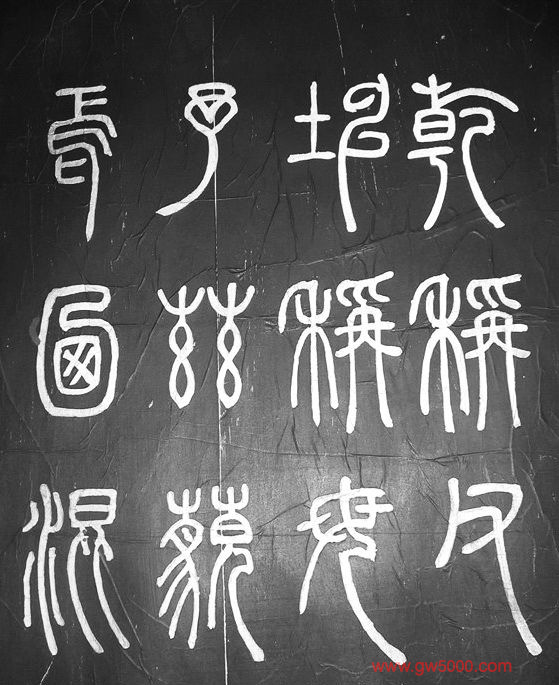 乾稱父
坤稱母
予茲藐
焉卥混
www.gw5000.com